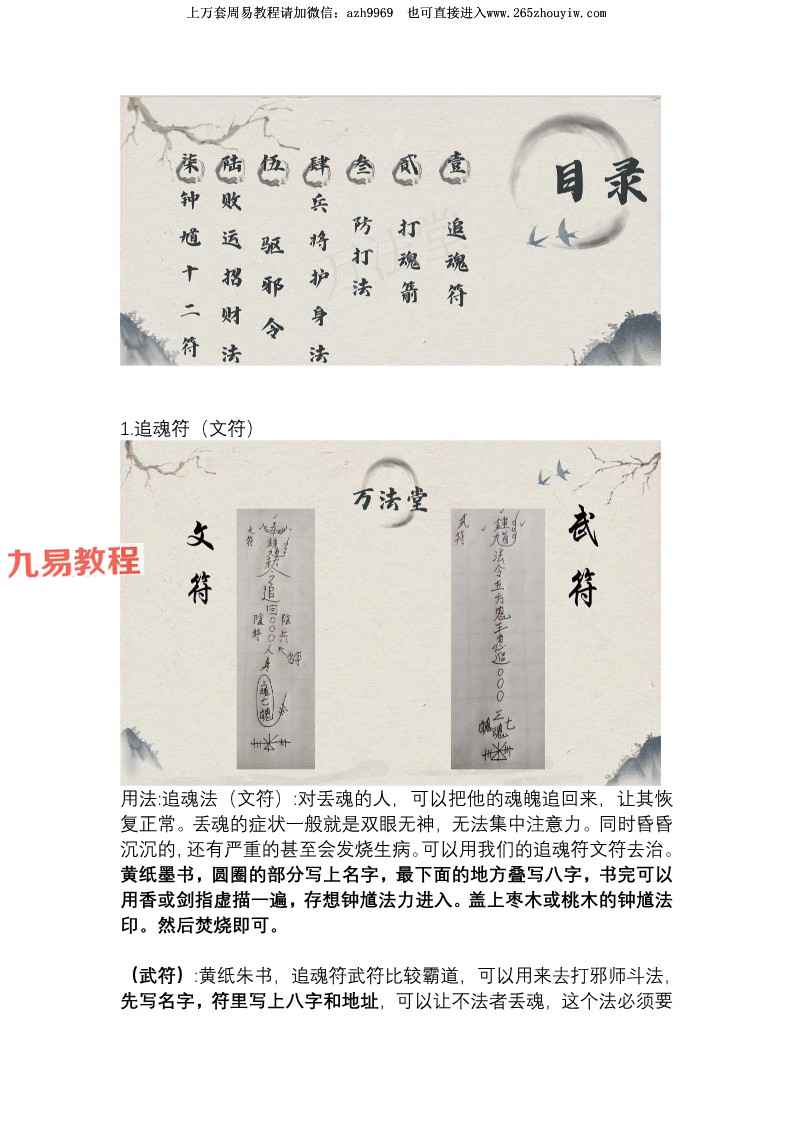 上万套周易教程请加微信：azh9969 也可直接进入www.265zhouyiw.com
目录
壹 追魂符
贰 打魂箭
叁 防打法
肆 兵将护身法
伍 驱邪令
陆 败运招财法
柒 钟馗十二符
1.追魂符（文符）
万法堂
文符
武符
文符
追回〇〇〇人
武符
法令
九易教程
用法:追魂法（文符）:对丢魂的人，可以把他的魂魄追回来，让其恢
复正常。丢魂的症状一般就是双眼无神，无法集中注意力。同时昏昏
沉沉的，还有严重的甚至会发烧生病。可以用我们的追魂符文符去治。
黄纸墨书，圆圈的部分写上名字，最下面的地方叠写八字，书完可以
用香或剑指虚描一遍，存想钟馗法力进入。盖上枣木或桃木的钟馗法
印。然后焚烧即可。
（武符）:黄纸朱书，追魂符武符比较霸道，可以用来去打邪师斗法，
先写名字，符里写上八字和地址，可以让不法者丢魂，这个法必须要